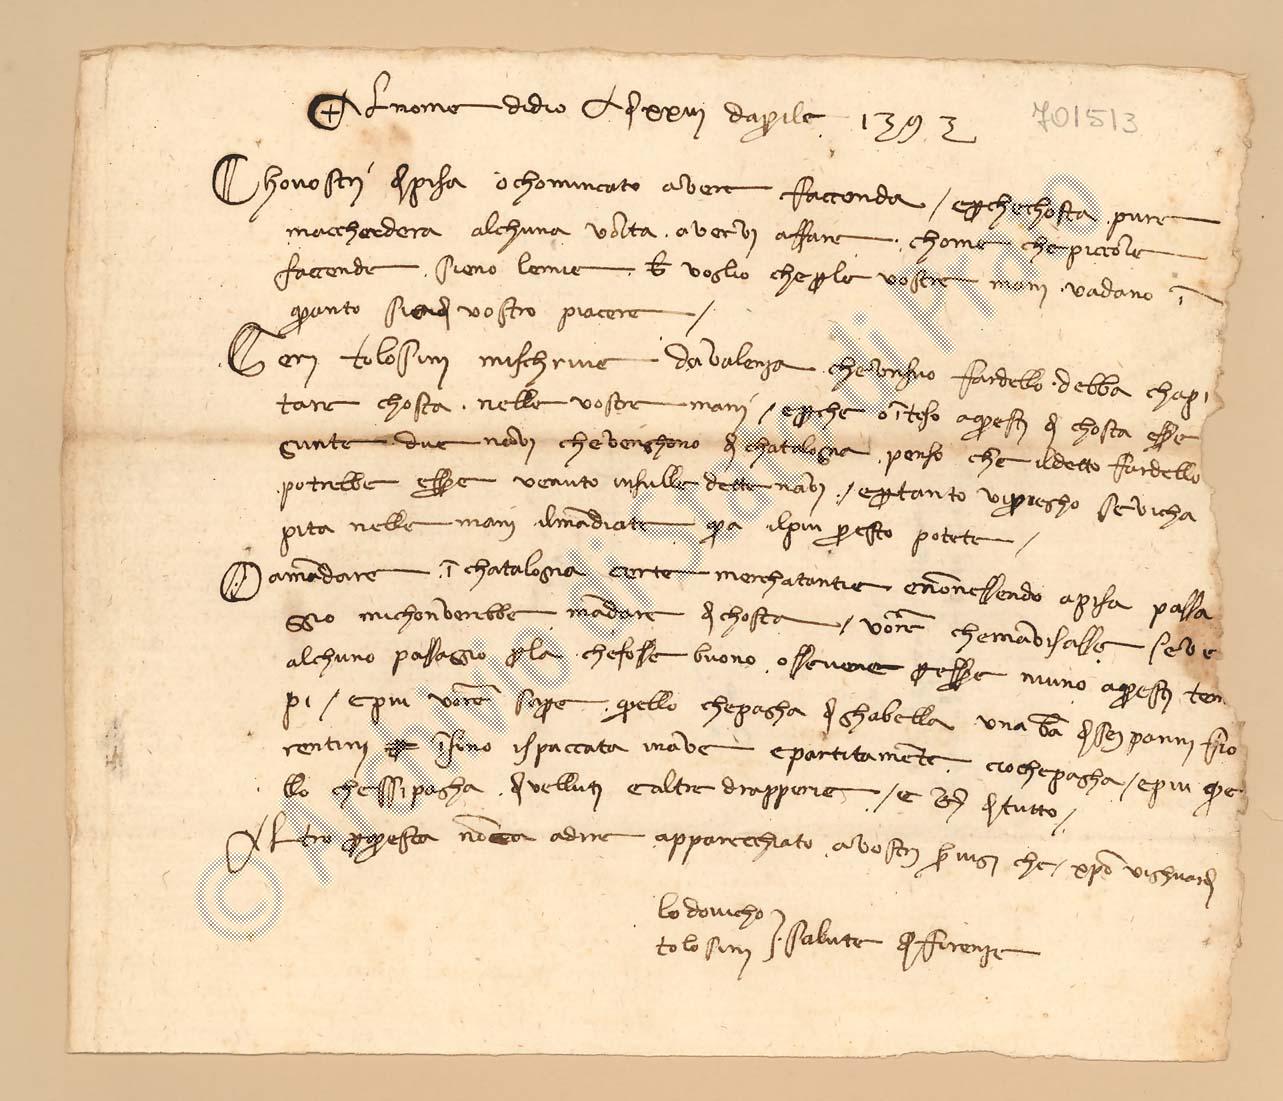 Al nome didio A dì xxiii daprile 1393
701513
Cho vostri di pisa o chominciato avere faccienda / e perche chosta pure
maccherdera alchuna volta avervi affare chome che picciole
faccende sieno le mie voglio che per le vostre mani vadano i
quanto sia di vostro piacere /
Geri tolosini mi schrive da valenza che un suo fardello debba chapi
tare chosta nelle vostre mani / e perche o inteso a questi di chosta esse
giunte due navi che venghono di chatalogna penso che il detto fardello
potrebbe essere venuto in sulle dette navi / e pertanto vi priegho se vi cha
pita nelle mani il mandiate qua il piu presto potete /
O a mandare i chatalogna certe merchatantie e non essendo a pisa passa
ggio mi chonverebbe mandare di chosta / vorre che mavisassi se ve
alchuno passaggio per la che fosse buono o sse ve ne per essere niuno a questi tem
pi / e piu vorrei sapere quello che pagha di ghabella una balla di sei panni fio
rentini insino ispacciata i nave e partitamente cio che pagha / e piu que
llo che ssi pagha di velluti e altre drapperie / e di tutto /
Altro per questa non ca a dire apparecchiato a vostri che / xpo vi ghuardi
lodovicho
tolosini } salute di firenze
© Archivio di Stato di Prato